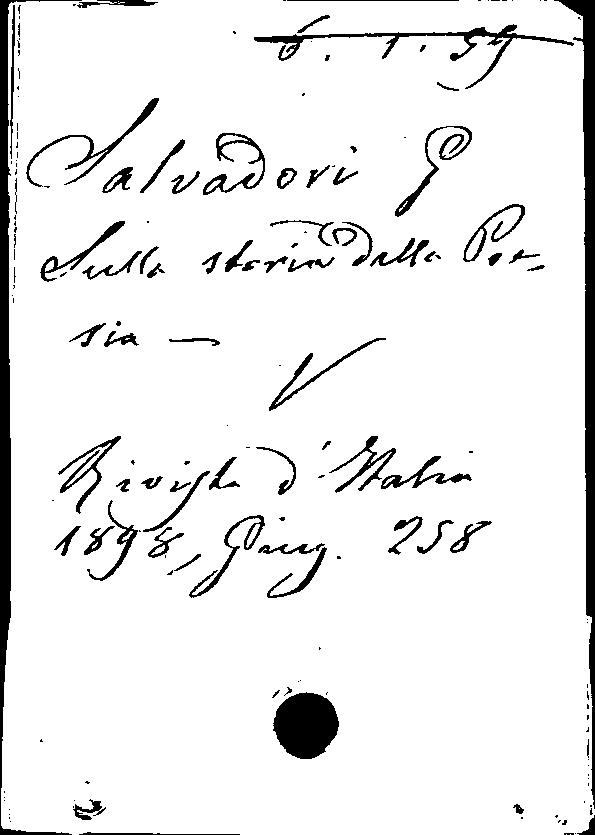 6. 1. 59
Salvadori G
Sulla storia della Poe-
sia —
Rivista d'Italia
1898, Giug. 258